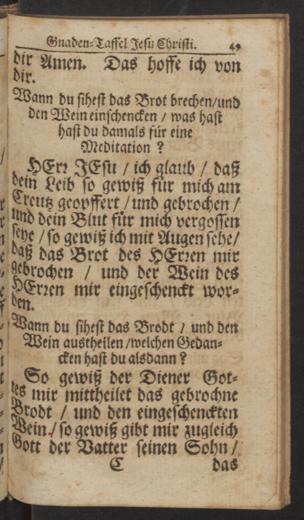 Gnaden-Taffel Jesu Christi. 49
dir Amen. Das hoffe ich von
dir.
Wann du sihest das Brot brechen/und
den Wein einschencken / was hast
hast du damals für eine
Meditation ?
HErr JEsu / ich glaub / daß
dein Leib so gewiß für mich am
Creutz geopffert / und gebrochen /
und dein Blut für mich vergossen
seye / so gewiß ich mit Augen sehe/
daß das Brot des HErren mir
gebrochen / und der Wein des
HErren mir eingeschenckt wor-
den.
Wann du sihest das Brodt / und den
Wein austheilen /welchen Gedan-
cken hast du alsdann ?
So gewiß der Diener Got-
tes mir mittheilet das gebrochne
Brodt / und den eingeschenckten
Wein / so gewiß gibt mir zugleich
Gott der Vatter seinen Sohn /
C das